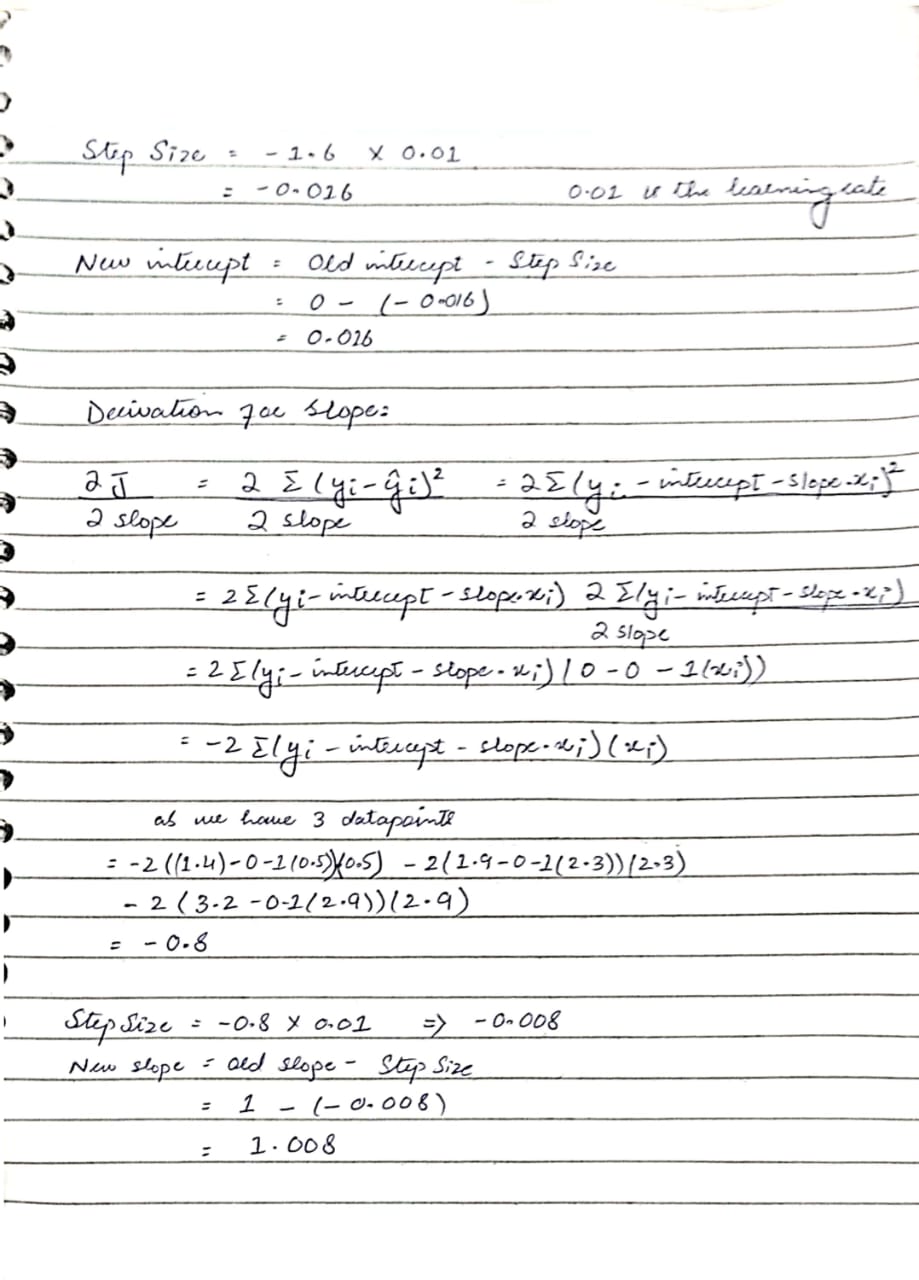 Step Size = - 1.6 × 0.01
= - 0.016 0.01 is the learning rate
New intercept = Old intercept - Step Size
= 0 - (- 0.016)
= 0.016
Derivation for slope:
∂J / ∂ slope = ∂ Σ(yi - ŷi)² / ∂ slope = ∂Σ(yi - intercept - slope.xi)² / ∂ slope
= 2Σ(yi - intercept - slope.xi) ∂ Σ(yi - intercept - slope.xi) / ∂ slope
= 2Σ(yi - intercept - slope.xi)(0 - 0 - 1(xi))
= -2 Σ(yi - intercept - slope.xi)(xi)
as we have 3 datapoints
= -2((1.4)-0-1(0.5))(0.5) - 2(1.9-0-1(2.3))(2.3)
- 2(3.2 -0-1(2.9))(2.9)
= - 0.8
Step Size = -0.8 × 0.01 => -0.008
New slope = old slope - Step Size
= 1 - (-0.008)
= 1.008